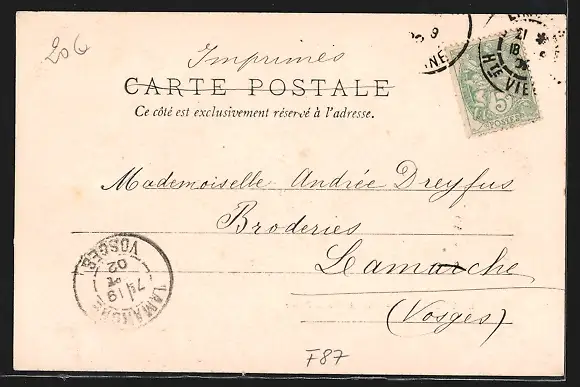 206
Imprimés
CARTE POSTALE
Ce côté est exclusivement réservé à l'adresse.
5
POSTES
21
18
Hte VIE
9
NNE
Mademoiselle Andrée Dreyfus
Broderies
Lamarche
(Vosges)
LAMARCHE
7E 19
02
VOSGES
F87